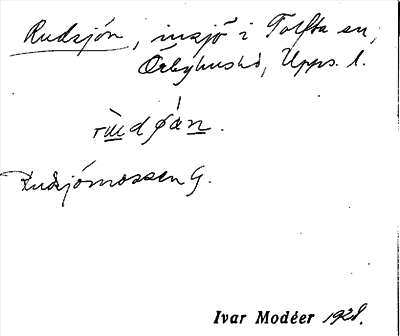 Rudsjön, insjö i Tolfta sn,
Örbyhus hd, Upps. l.
Rudsjömossen G.
Ivar Modéer 1928.